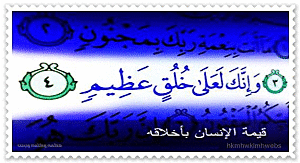 مَا أَنتَ بِنِعْمَةِ رَبِّكَ بِمَجْنُونٍ ٢
٣ وَإِنَّكَ لَعَلَىٰ خُلُقٍ عَظِيمٍ ٤
قيمة الإنسان بأخلاقه
hkmhwkmhwebs